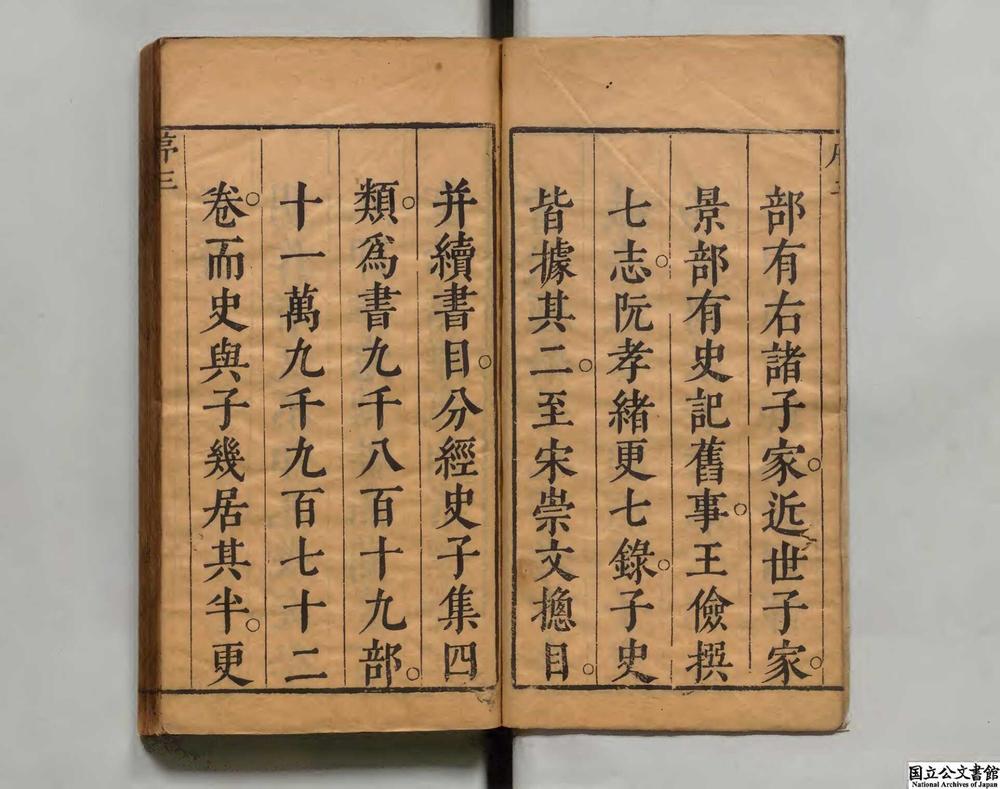 部有右諸子家。近世子家。
景部有史記舊事。王儉撰
七志。阮孝緒更七錄。子史
皆據其二。至宋崇文摠目。
并續書目。分經史子集四
類。爲書九千八百十九部。
十一萬九千九百七十二
卷。而史與子幾居其半。更
序三
国立公文書館
National Archives of Japan